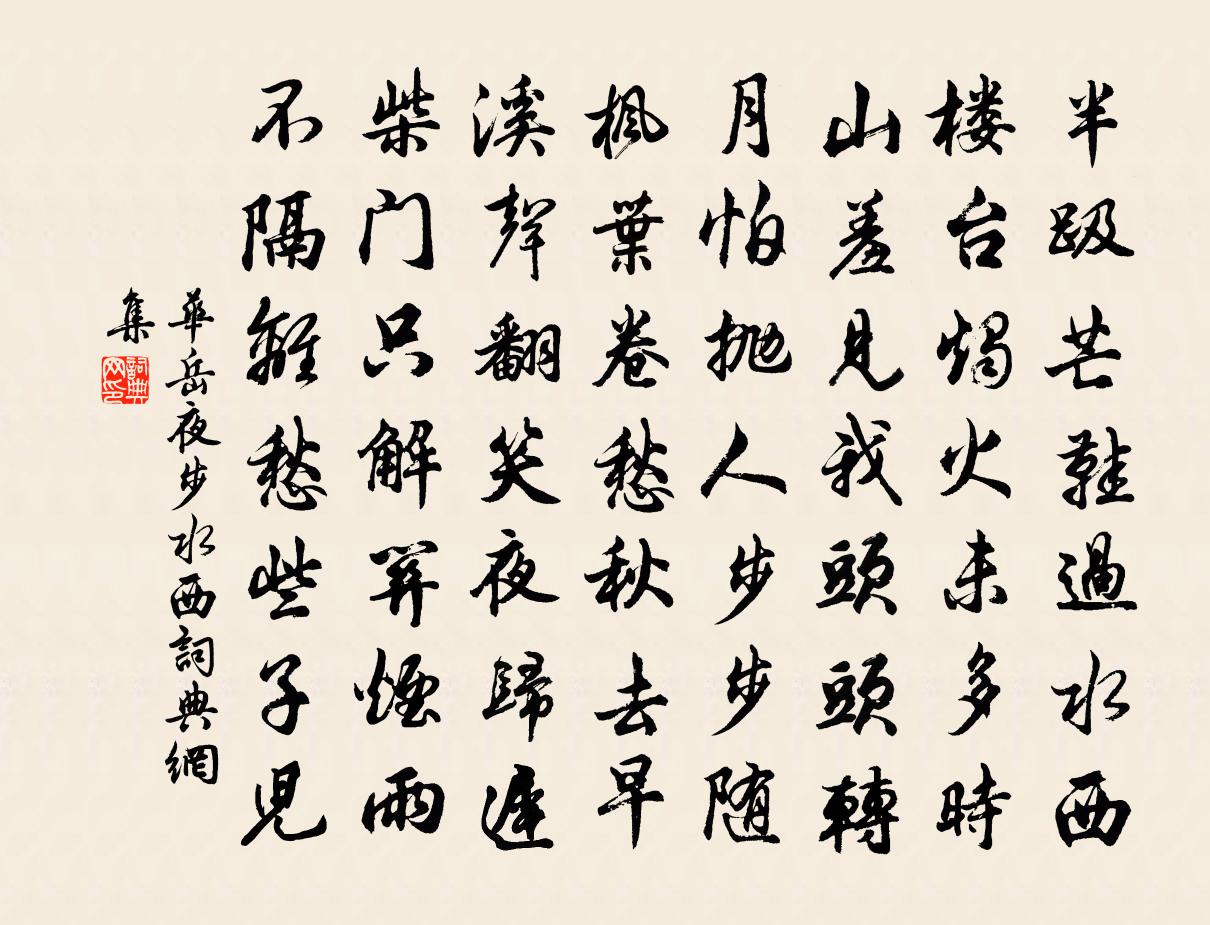 半趿芒鞋過水西
楼台燭火未多時
山羞見我頭頭轉
月怕抛人步步随
楓葉卷愁秋去早
溪聲翻笑夜歸遲
柴门只解開煙雨
不隔離愁些子兒
華岳夜步水西詞典網
集
詞典网印